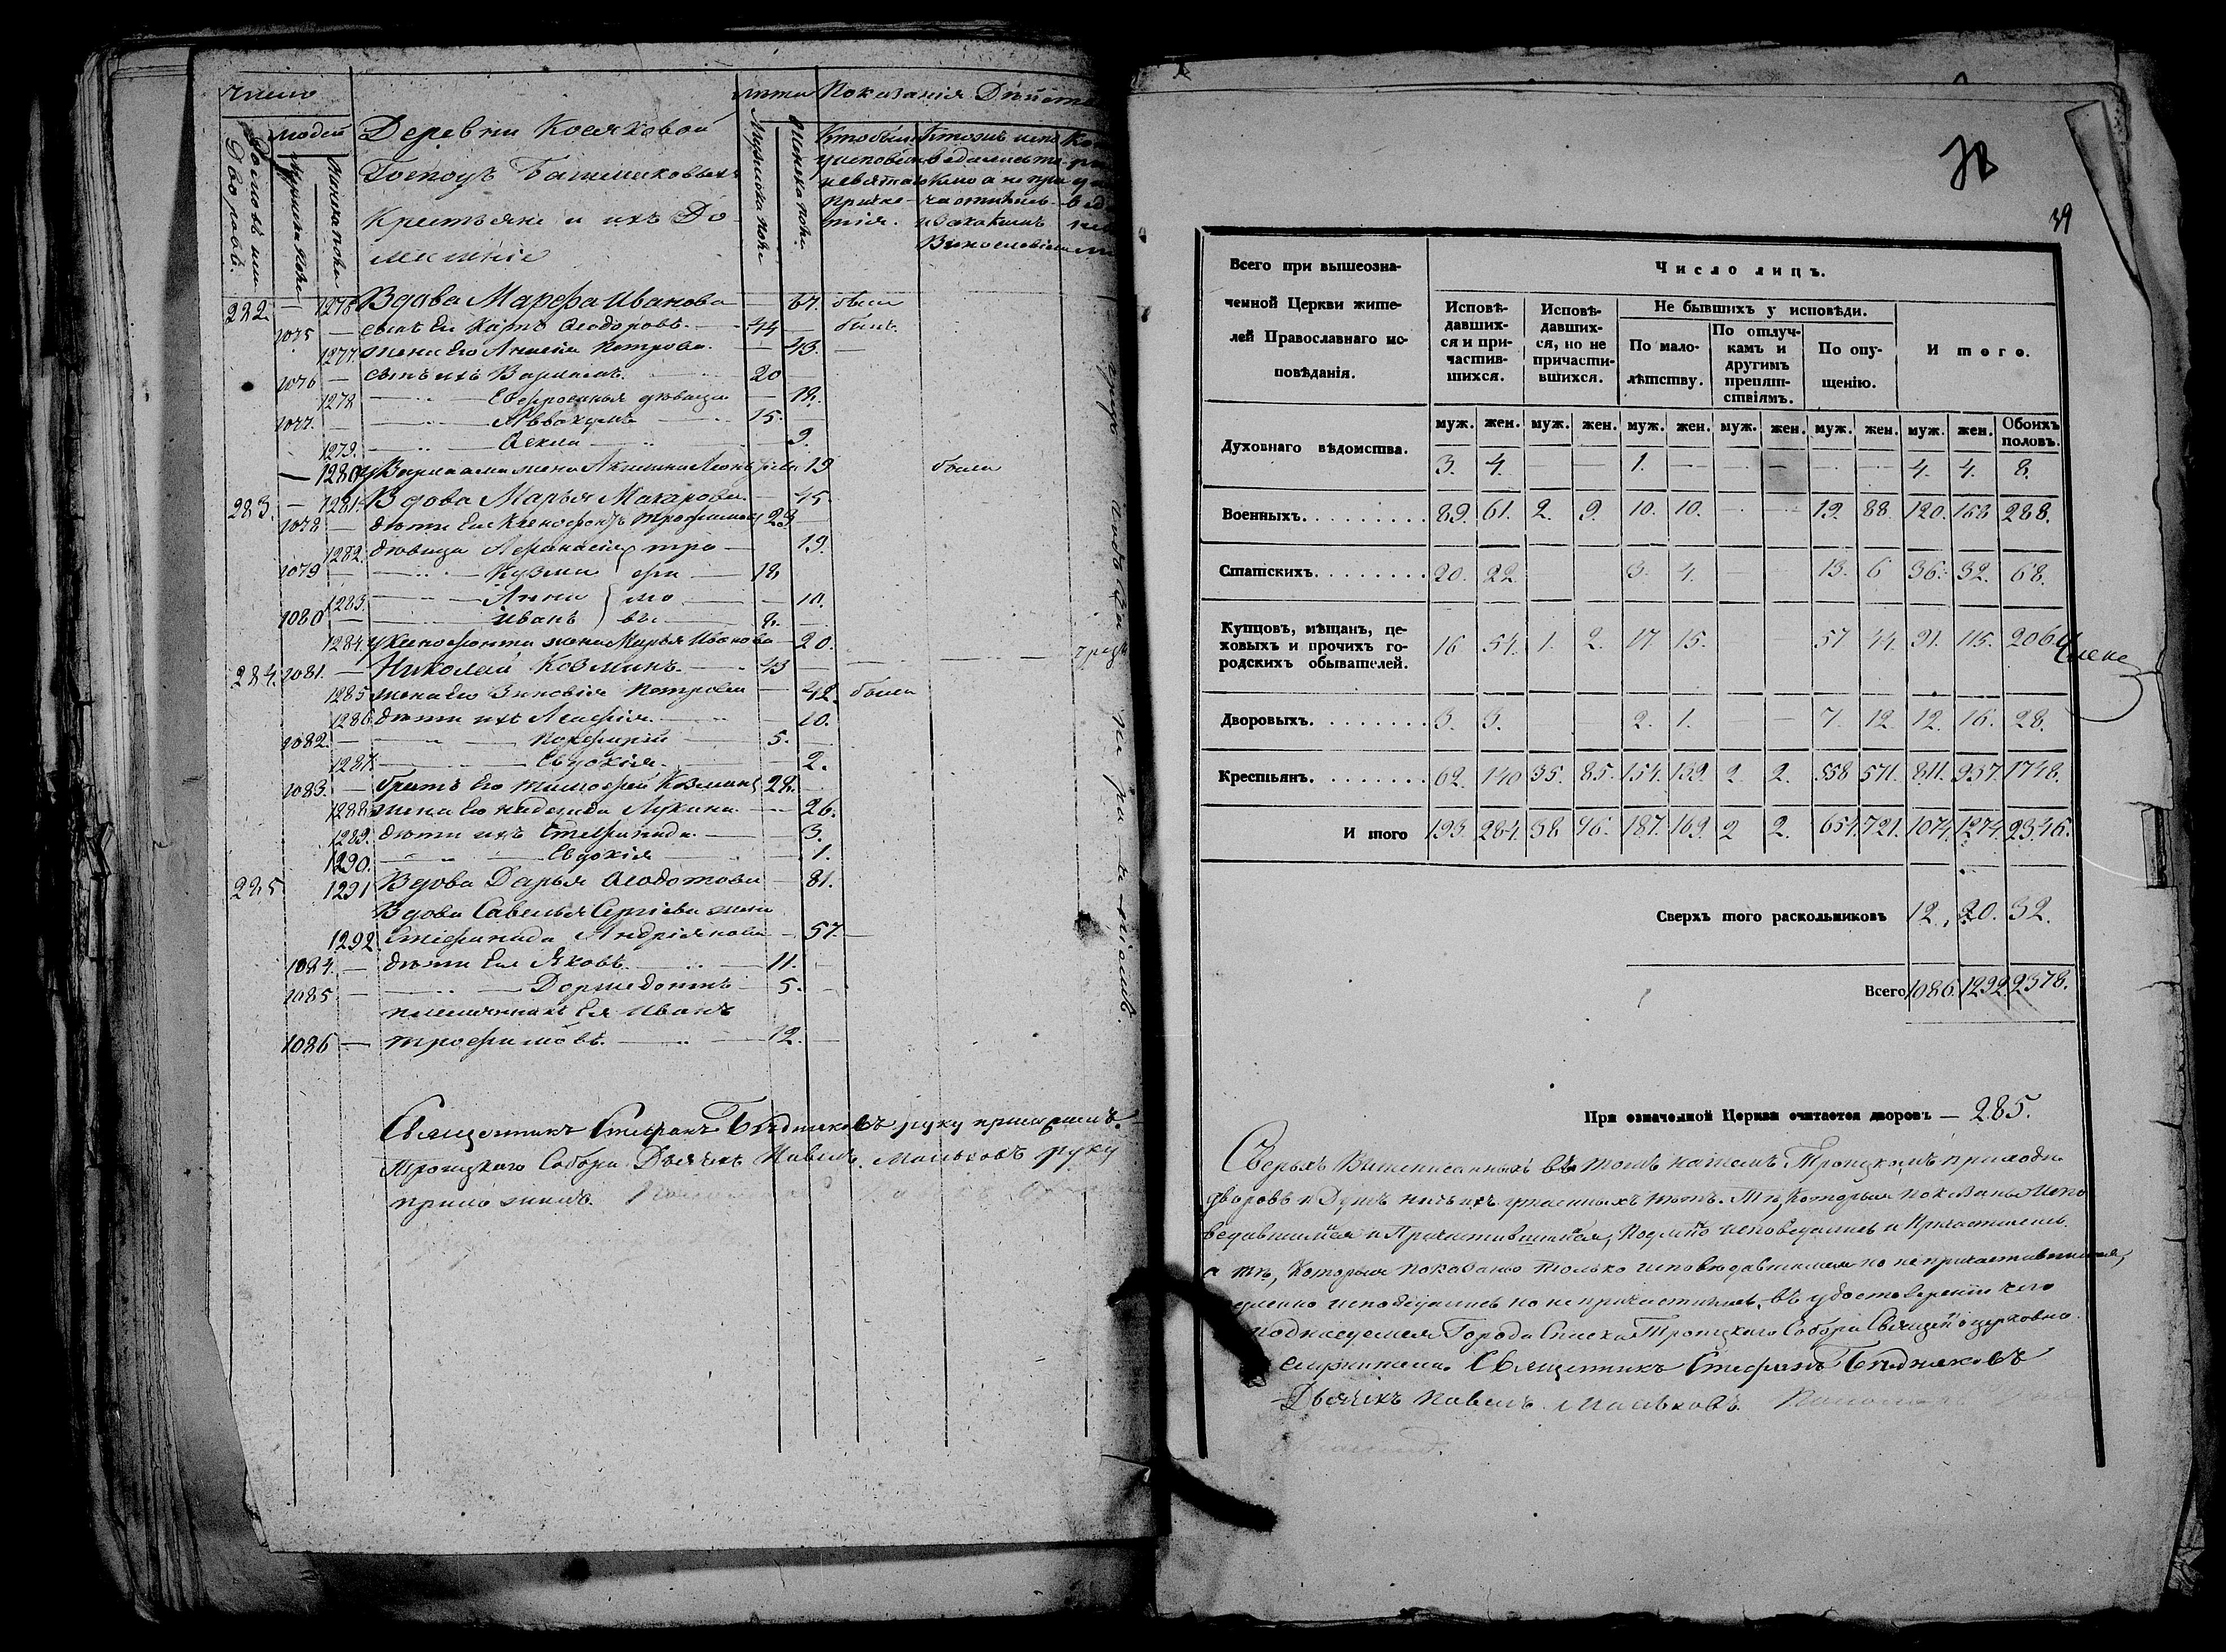 число
лѣта Показанія
Домовъ или Дворовъ.
людей
Мужеска полу
Женска полу
Деревни Косяковой
Господъ Башмаковыхъ
Крестьяне и ихъ До-
машніе
Мужеска полу
Женска полу
Кто былъ
у исповѣди
и святаго
причас-
тія.
222. — 1276 Вдова Марѳа Иванова — 67. были
1075 — сынъ Ея Карпъ Ѳеодоровъ — 44 — былъ
1277 жена Его Анисія Петрова — 43. —
1076 — сынъ ихъ Варлаамъ 20
1278 Евфросинья дѣвица — 18.
1077. — Аввакумъ 15.
1279. Ѳекла 9.
— 1280 у Варлаама жена Акилина 19 были
223. — 1281 Вдова Марья Макарова — 45
1078 — дѣти Ея Ксенофонтъ Трофимовъ 23 —
1282. дѣвица Аѳанасія тро — 19.
1079 — Кузма фи — 18
1283. — Анна мо — 10.
1080 — Иванъ вы 8. —
1284. у Ксенофонта жена Марья Иванова — 20.
224. 1081. — Николай Козминъ — 43
1285 жена Его Зиновія Петрова — 42. были
1286 дѣти ихъ — 10.
1082. — Порфирій — 5. —
1287. Евдокія — 2.
1083. — братъ Его Тимофей Козминъ 28. —
1288 жена Его Надежда Лукина — 26.
1289. дѣти ихъ Стефанида — 3.
1290. Евдокія — 1.
225 1291 Вдова Дарья Ѳеодотова — 81.
Вдова Савелья Сергіева жена
1292 Стефанида Андріянова — 57. —
1084. — дѣти Ея Яковъ — 11. —
1085 — Дормедонтъ — 5. —
племянникъ Ея Иванъ
1086 — Трофимовъ — 12. —
Священникъ Стефанъ Бѣдняковъ руку приложилъ.
Троицкаго Собора Дьячекъ Павелъ Маньковъ руку
приложилъ
39
Всего при вышеозна-
ченной Церкви жите-
лей Православнаго ис-
повѣданія.
Число лицъ.
Исповѣ-
давших-
ся и при-
частив-
шихся.
Исповѣ-
давших-
ся, но не
причасти-
вшихся.
Не бывшихъ у исповѣди.
По мало-
лѣтству.
По отлуч-
камъ и
другимъ
препят-
ствіямъ.
По опу-
щенію.
И того.
муж. жен. муж. жен. муж. жен. муж. жен. муж. жен. муж. жен. Обоихъ половъ.
Духовнаго вѣдомства. 3. 4. — — 1. — — — — — 4. 4. 8.
Военныхъ. 89. 61. 2. 9. 10. 10. — — 19. 88. 120. 168 288.
Статскихъ. 20. 22. 3. 4. — — 13. 6 36. 32. 68.
Купцовъ, мѣщанъ, це-
ховыхъ и прочихъ го-
родскихъ обывателей. 16 54. 1. 2. 17 15. — 57 44. 91. 115. 206
Дворовыхъ. 3. 3. — 2. 1. — 7. 12. 12. 16. 28.
Крестьянъ. 62. 140 35. 85. 154. 139. 2. 2. 558 571. 811. 937. 1748.
И того 193. 284. 38. 96. 187. 169. 2 2. 654. 721. 1074. 1274. 2346.
Сверхъ того раскольниковъ 12. 20. 32.
Всего 1086. 1292. 2378.
При означенной Церкви считается дворовъ — 285.
Сверхъ Вышеписанныхъ въ томъ нашемъ Троицкомъ приходѣ
дворовъ и Душъ никакихъ утаенныхъ нѣтъ. Тѣ, которыя показаны Испо
ведавшимися и Причастившимися, подлинно исповедались и Причастились.
а тѣ, Которыя показаны только исповѣдавшимися но не причастившимися,
исповедались но не причастились. Въ удостовереніи чего
подписуемся Города Троицкаго Собора Священноцерковно
служители. Священникъ Стефанъ Бѣдняковъ
Дьячекъ Павелъ Маньковъ.